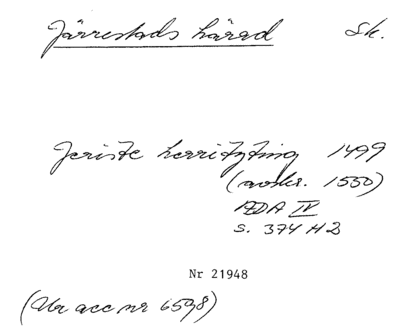 Järrestads härad Sk.
Jeriste herritzting 1499
(avskr. 1550)
ÆDA IV
s. 374 H 2
Nr 21948
(Ur acc nr 6598)